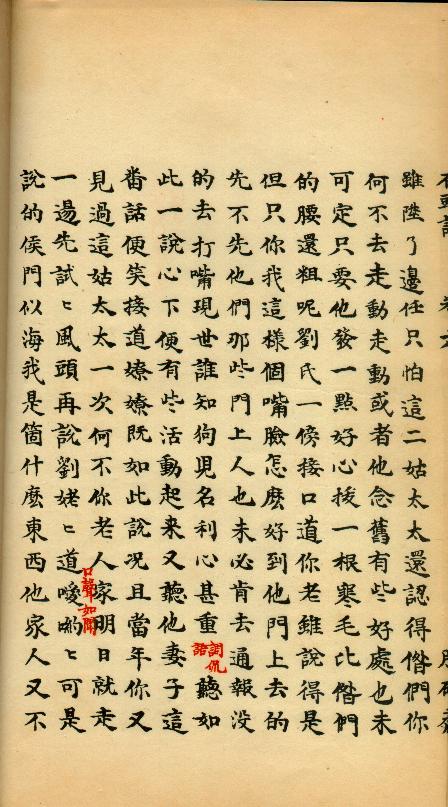 雖陞了邊任只怕這二姑太太還認得偺們你
何不去走動走動或者他念舊有些好處也未
可定只要他發一點好心拔一根寒毛比偺們
的腰還粗呢劉氏一傍接口道你老雖說得是
但只你我這樣個嘴臉怎麽好到他門上去的
先不先他們那些門上人也未必肯去通報没
的去打嘴現世誰知狗児名利心甚重聽如
此一說心下便有些活動起来又聽他妻子這
畨話便笑接道嫽嫽既如此說况且當年你又
見過這姑太太一次何不你老人家明日就走
一逿先試〻風頭再說劉姥〻道噯喲〻可是
說的侯門似海我是箇什麽東西他家人又不
口聲如聞